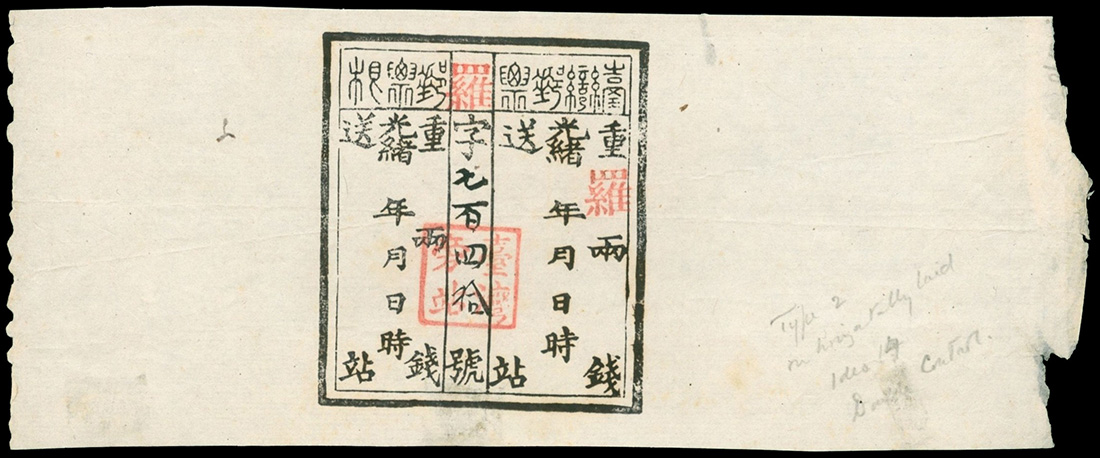 臺灣郵票
重羅兩錢
光緒年月日時
送站
羅字七百四拾號
郵票根
重兩錢
光緒年月日時
送站
臺灣
旁站
上
Type 2
on horizontally laid